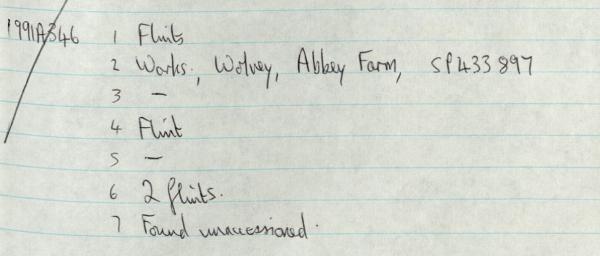 1991A346 1 Flints
2 Warks., Wolvey, Abbey Farm, SP433897
3 —
4 Flint
5 —
6 2 flints.
7 Found unaccessioned.